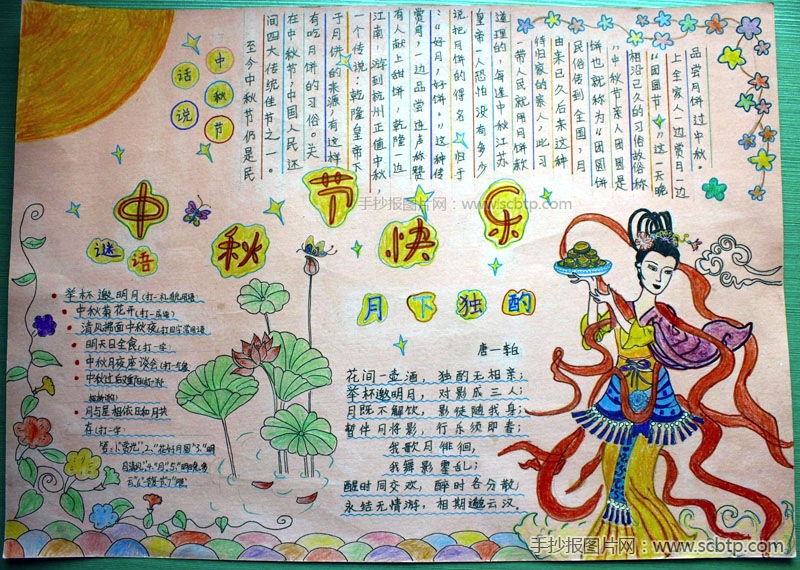 中秋节
话说
至今中秋节仍是民
间四大传统佳节之一。
在中秋节,中国人民还
有吃月饼的习俗。关
于月饼的来源,有这样
一个传说:乾隆皇帝下
江南,游到杭州正值中秋,
有人献上甜饼,乾隆一边
赏月,边品尝连声称赞
:“好月,好饼。”这种传
说把月饼的得名,归于
皇帝一人恐怕没有多少
道理的,每逢中秋江苏
一带人民就用月饼款
待归家的亲人,此习
由来已久后来这种
民俗传到全国,月
饼也就称为“团圆饼
”中秋节亲人团圆是
相沿已久的习俗故俗称
“团圆节”,这一天晚
上全家人一边赏月一边
品尝月饼过中秋。
中秋节快乐
手抄报图片网:www.scbtp.com
谜语
举杯邀明月(打一礼貌用语)
中秋菊花开(打一成语)
清风拂面中秋夜(打四字常用语)
明天日全食(打一字)
中秋月夜座谈会(打一气象
中秋过后又重阳(打一
月与星相依日和月共
存(打一字)
答:1.“赏光”,2、“花好月圆”3.“明
月清风”4.“月”5.“
月下独酌
唐—李白
花间一壶酒,独酌无相亲;
举杯邀明月,对影成三人;
月既不解饮,影徒随我身;
暂伴月将影,行乐须即春;
我歌月徘徊,
我舞影零乱;
醒时同交欢,醉时各分散,
永结无情游,相期邈云汉。
手抄报图片网:www.scbtp.com